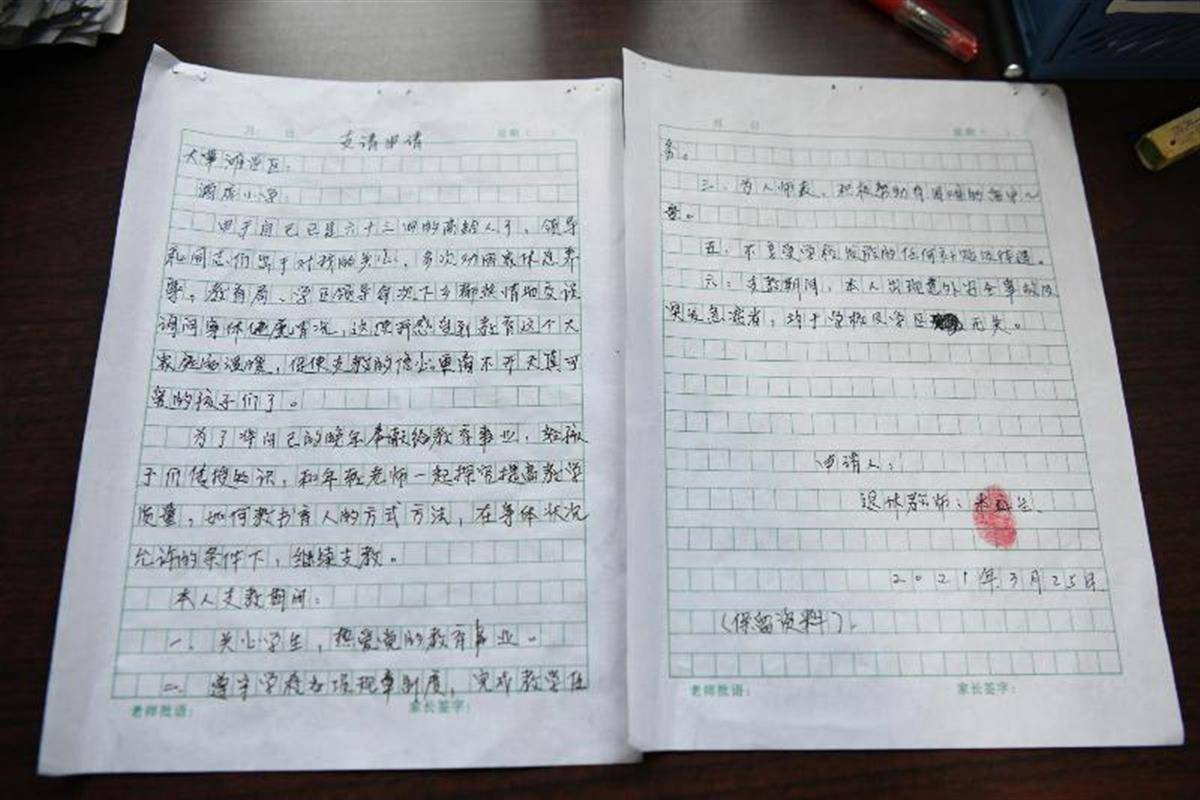 月 日 星期（ ）
支请申请
大草滩学区：
酒店小学：
由于自己已是六十三四的高龄人了，领导
和同志们出于对我的关心，多次劝回家休息养
老。教育局、学区领导每次下乡都热情地交谈
询问身体健康情况，这使我感受到教育这个大
家庭的温暖，促使支教的信心更离不开天真可
爱的孩子们了。
为了将自己的晚年奉献给教育事业，给孩
子们传授知识，和年轻老师一起探究提高教学
质量，如何教书育人的方式方法，在身体状况
允许的条件下，继续支教。
本人支教期间：
一、关心学生，热爱党的教育事业。
二、遵守学校各项规章制度，完成教学任
老师批语： 家长签字：
月 日 星期（ ）
务。
三、为人师表，积极帮助有困难的
五、不享受学校发放的任何补贴及待遇。
六、支教期间，本人出现意外安全事故及
突发急病者，均于学校及学区无关。
申请人：
退休教师：
2021年3月25日
（保留资料）
老师批语： 家长签字：